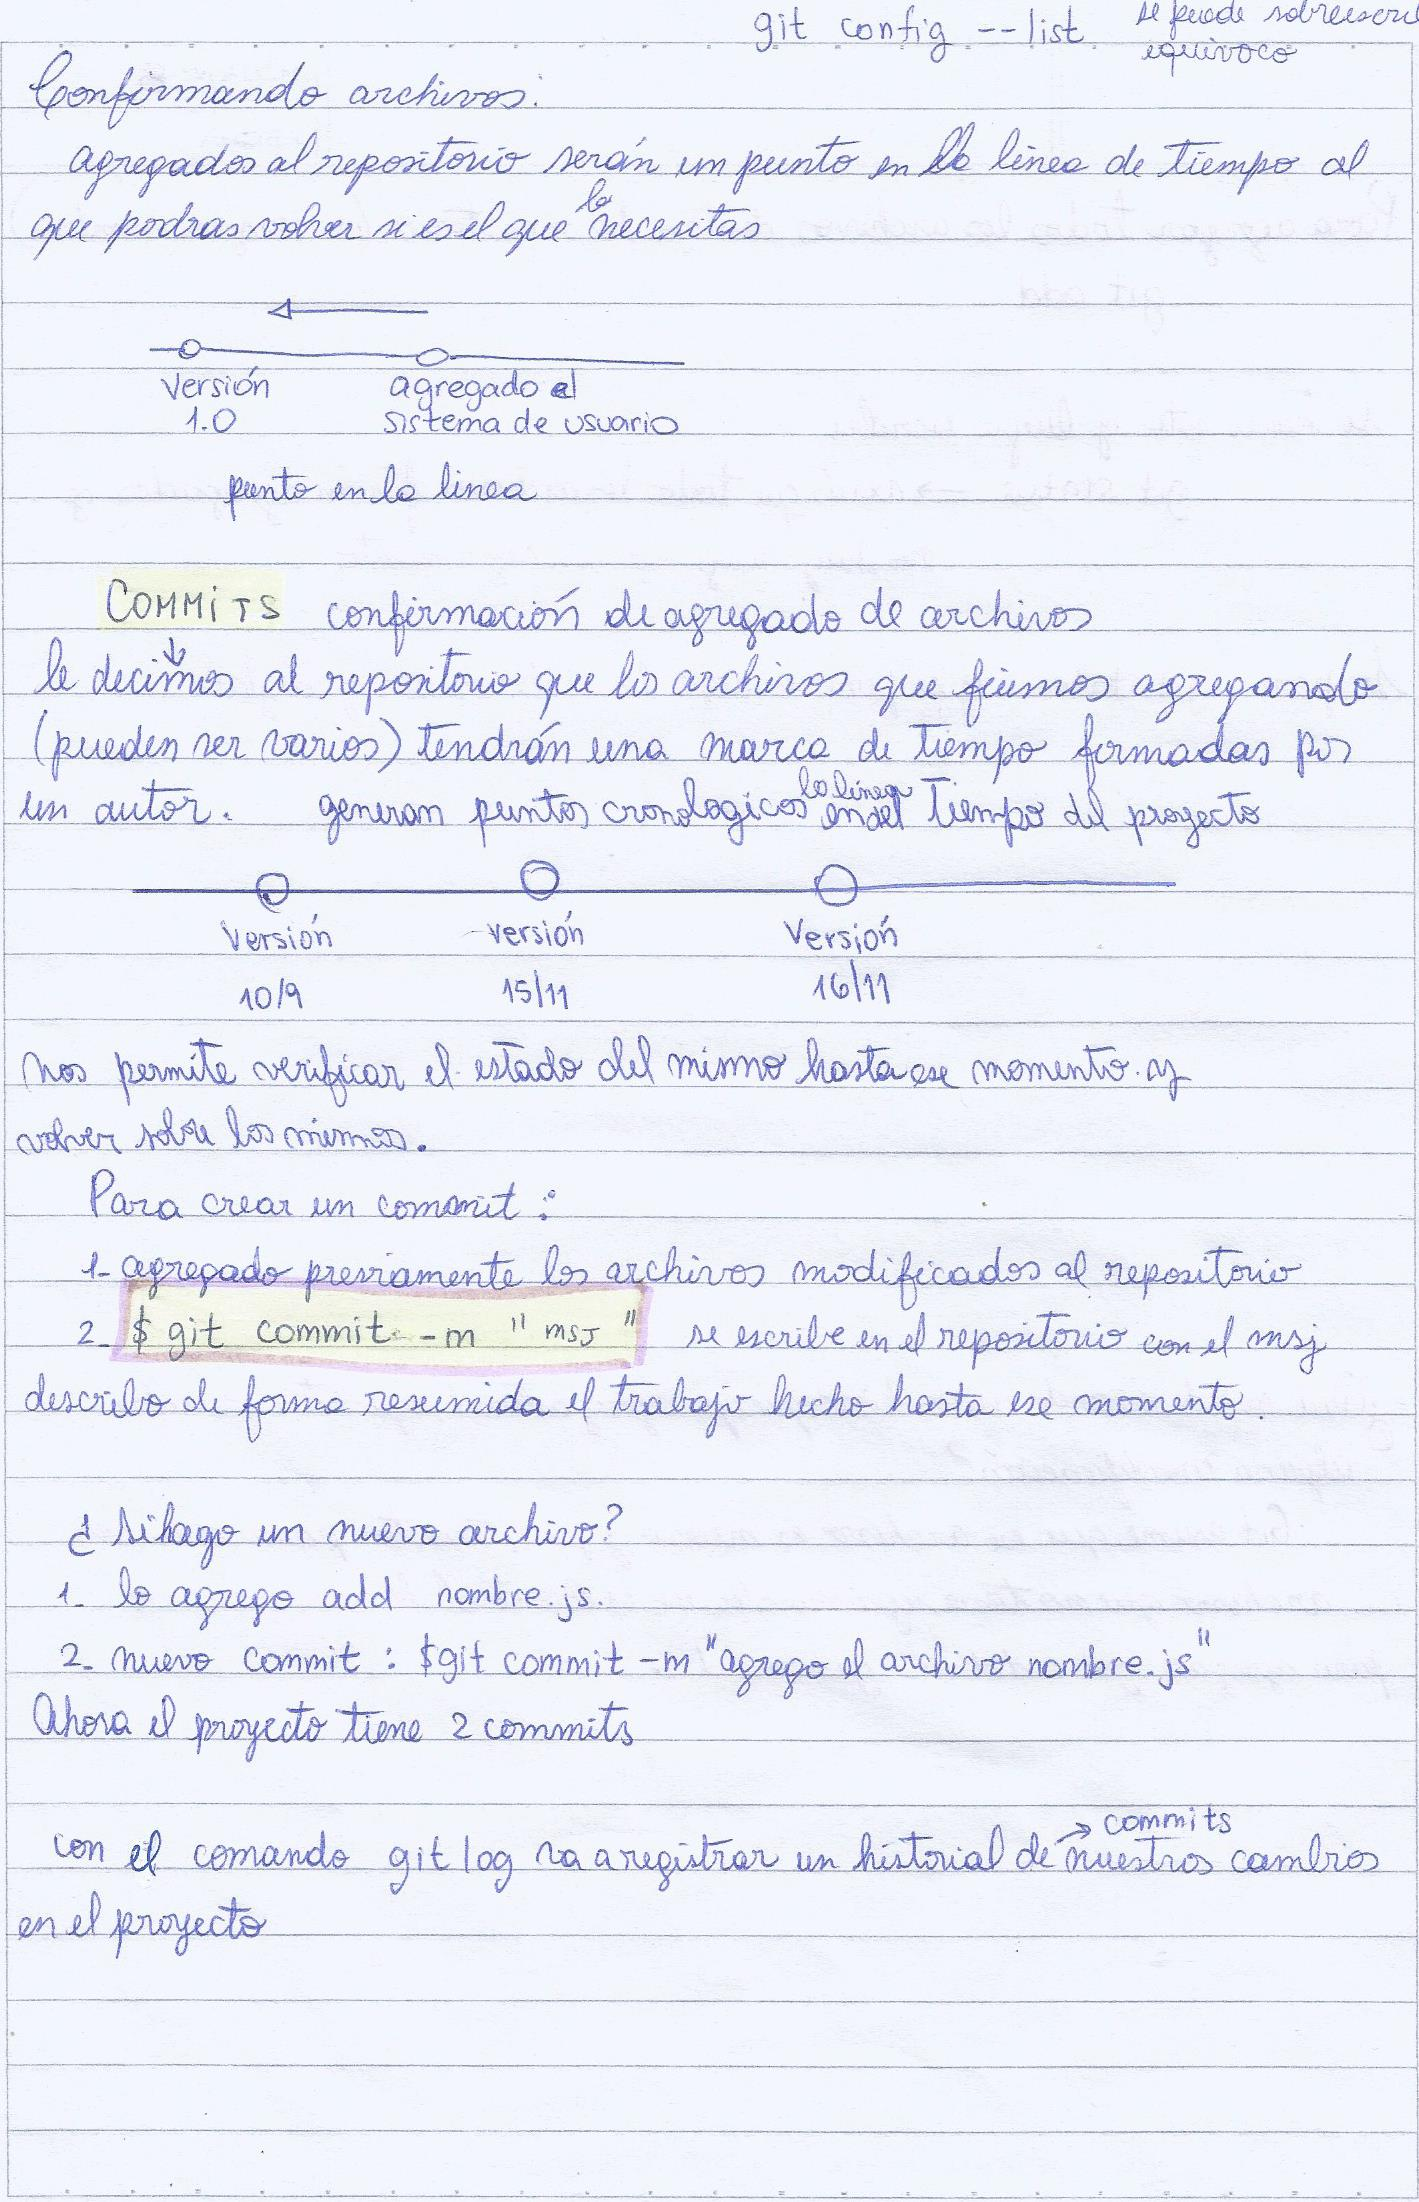 git config --list se puede sobreescri
equivoco
Confirmando archivos:
agregados al repositorio serán un punto en la linea de tiempo al
que podras volver si es el que lo necesitas
Versión agregado al
1.0 sistema de usuario
punto en la linea
COMMITS confirmación de agregado de archivos
le decimos al repositorio que los archivos que fuimos agregando
(pueden ser varios) tendrán una marca de tiempo formadas por
un autor. generan puntos cronologicos en la linea del tiempo del proyecto
Versión versión Versión
10/9 15/11 16/11
nos permite verificar el estado del mismo hasta ese momento y
volver sobre los mismos.
Para crear un commit:
1- agregado previamente los archivos modificados al repositorio
2- $ git commit -m "msj" se escribe en el repositorio con el msj
describo de forma resumida el trabajo hecho hasta ese momento.
¿ si hago un nuevo archivo?
1- lo agrego add nombre.js.
2- nuevo commit: $git commit -m "agrego el archivo nombre.js"
Ahora el proyecto tiene 2 commits
con el comando git log va a registrar un historial de nuestros cambios → commits
en el proyecto